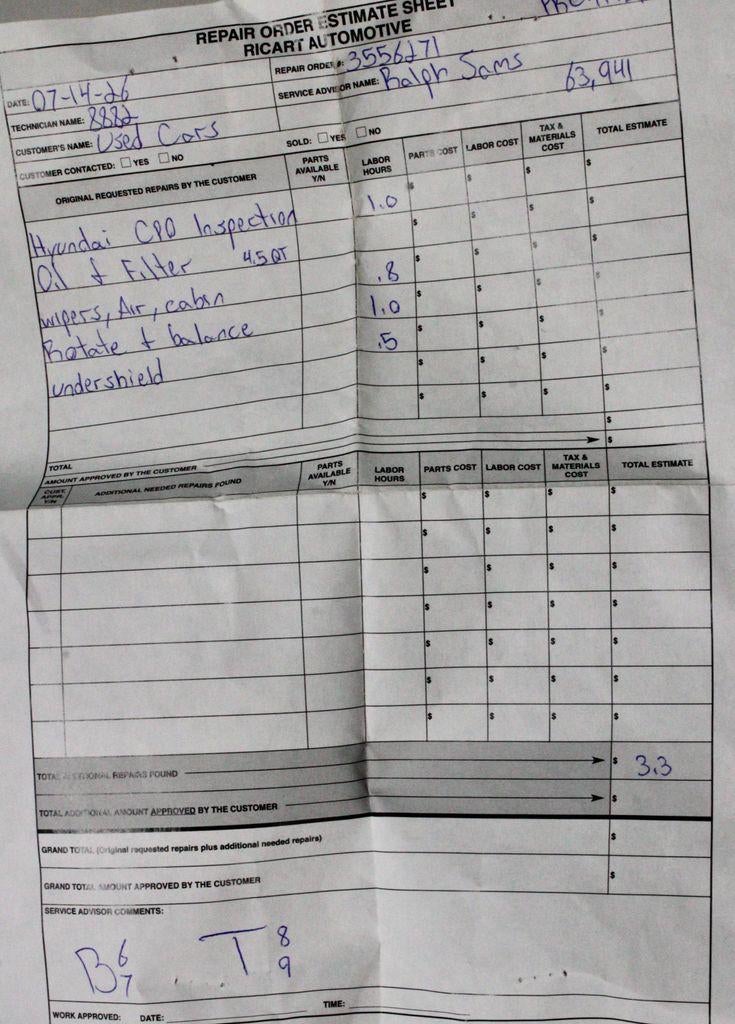 REPAIR ORDER ESTIMATE SHEET
RICART AUTOMOTIVE
DATE: 07-14-26
REPAIR ORDER #: 3556271
TECHNICIAN NAME: 8882
SERVICE ADVISOR NAME: Ralph Sams
63,941
CUSTOMER'S NAME: Used Cars
CUSTOMER CONTACTED: YES NO
SOLD: YES NO
ORIGINAL REQUESTED REPAIRS BY THE CUSTOMER PARTS AVAILABLE Y/N LABOR HOURS PARTS COST LABOR COST TAX & MATERIALS COST TOTAL ESTIMATE
Hyundai CPO Inspection 1.0 $ $ $ $
Oil & Filter 4.5 QT $ $ $ $
wipers, Air, cabin .8 $ $ $ $
Rotate & balance 1.0 $ $ $ $
undershield .5 $ $ $ $
$ $ $ $
TOTAL $
AMOUNT APPROVED BY THE CUSTOMER $
CUST. APPR. Y/N ADDITIONAL NEEDED REPAIRS FOUND PARTS AVAILABLE Y/N LABOR HOURS PARTS COST LABOR COST TAX & MATERIALS COST TOTAL ESTIMATE
$ $ $ $
$ $ $ $
$ $ $ $
$ $ $ $
$ $ $ $
$ $ $ $
$ $ $ $
TOTAL ADDITIONAL REPAIRS FOUND $ 3.3
TOTAL ADDITIONAL AMOUNT APPROVED BY THE CUSTOMER $
GRAND TOTAL (Original requested repairs plus additional needed repairs) $
GRAND TOTAL AMOUNT APPROVED BY THE CUSTOMER $
SERVICE ADVISOR COMMENTS:
B 6 7 T 8 9
WORK APPROVED: DATE: TIME: